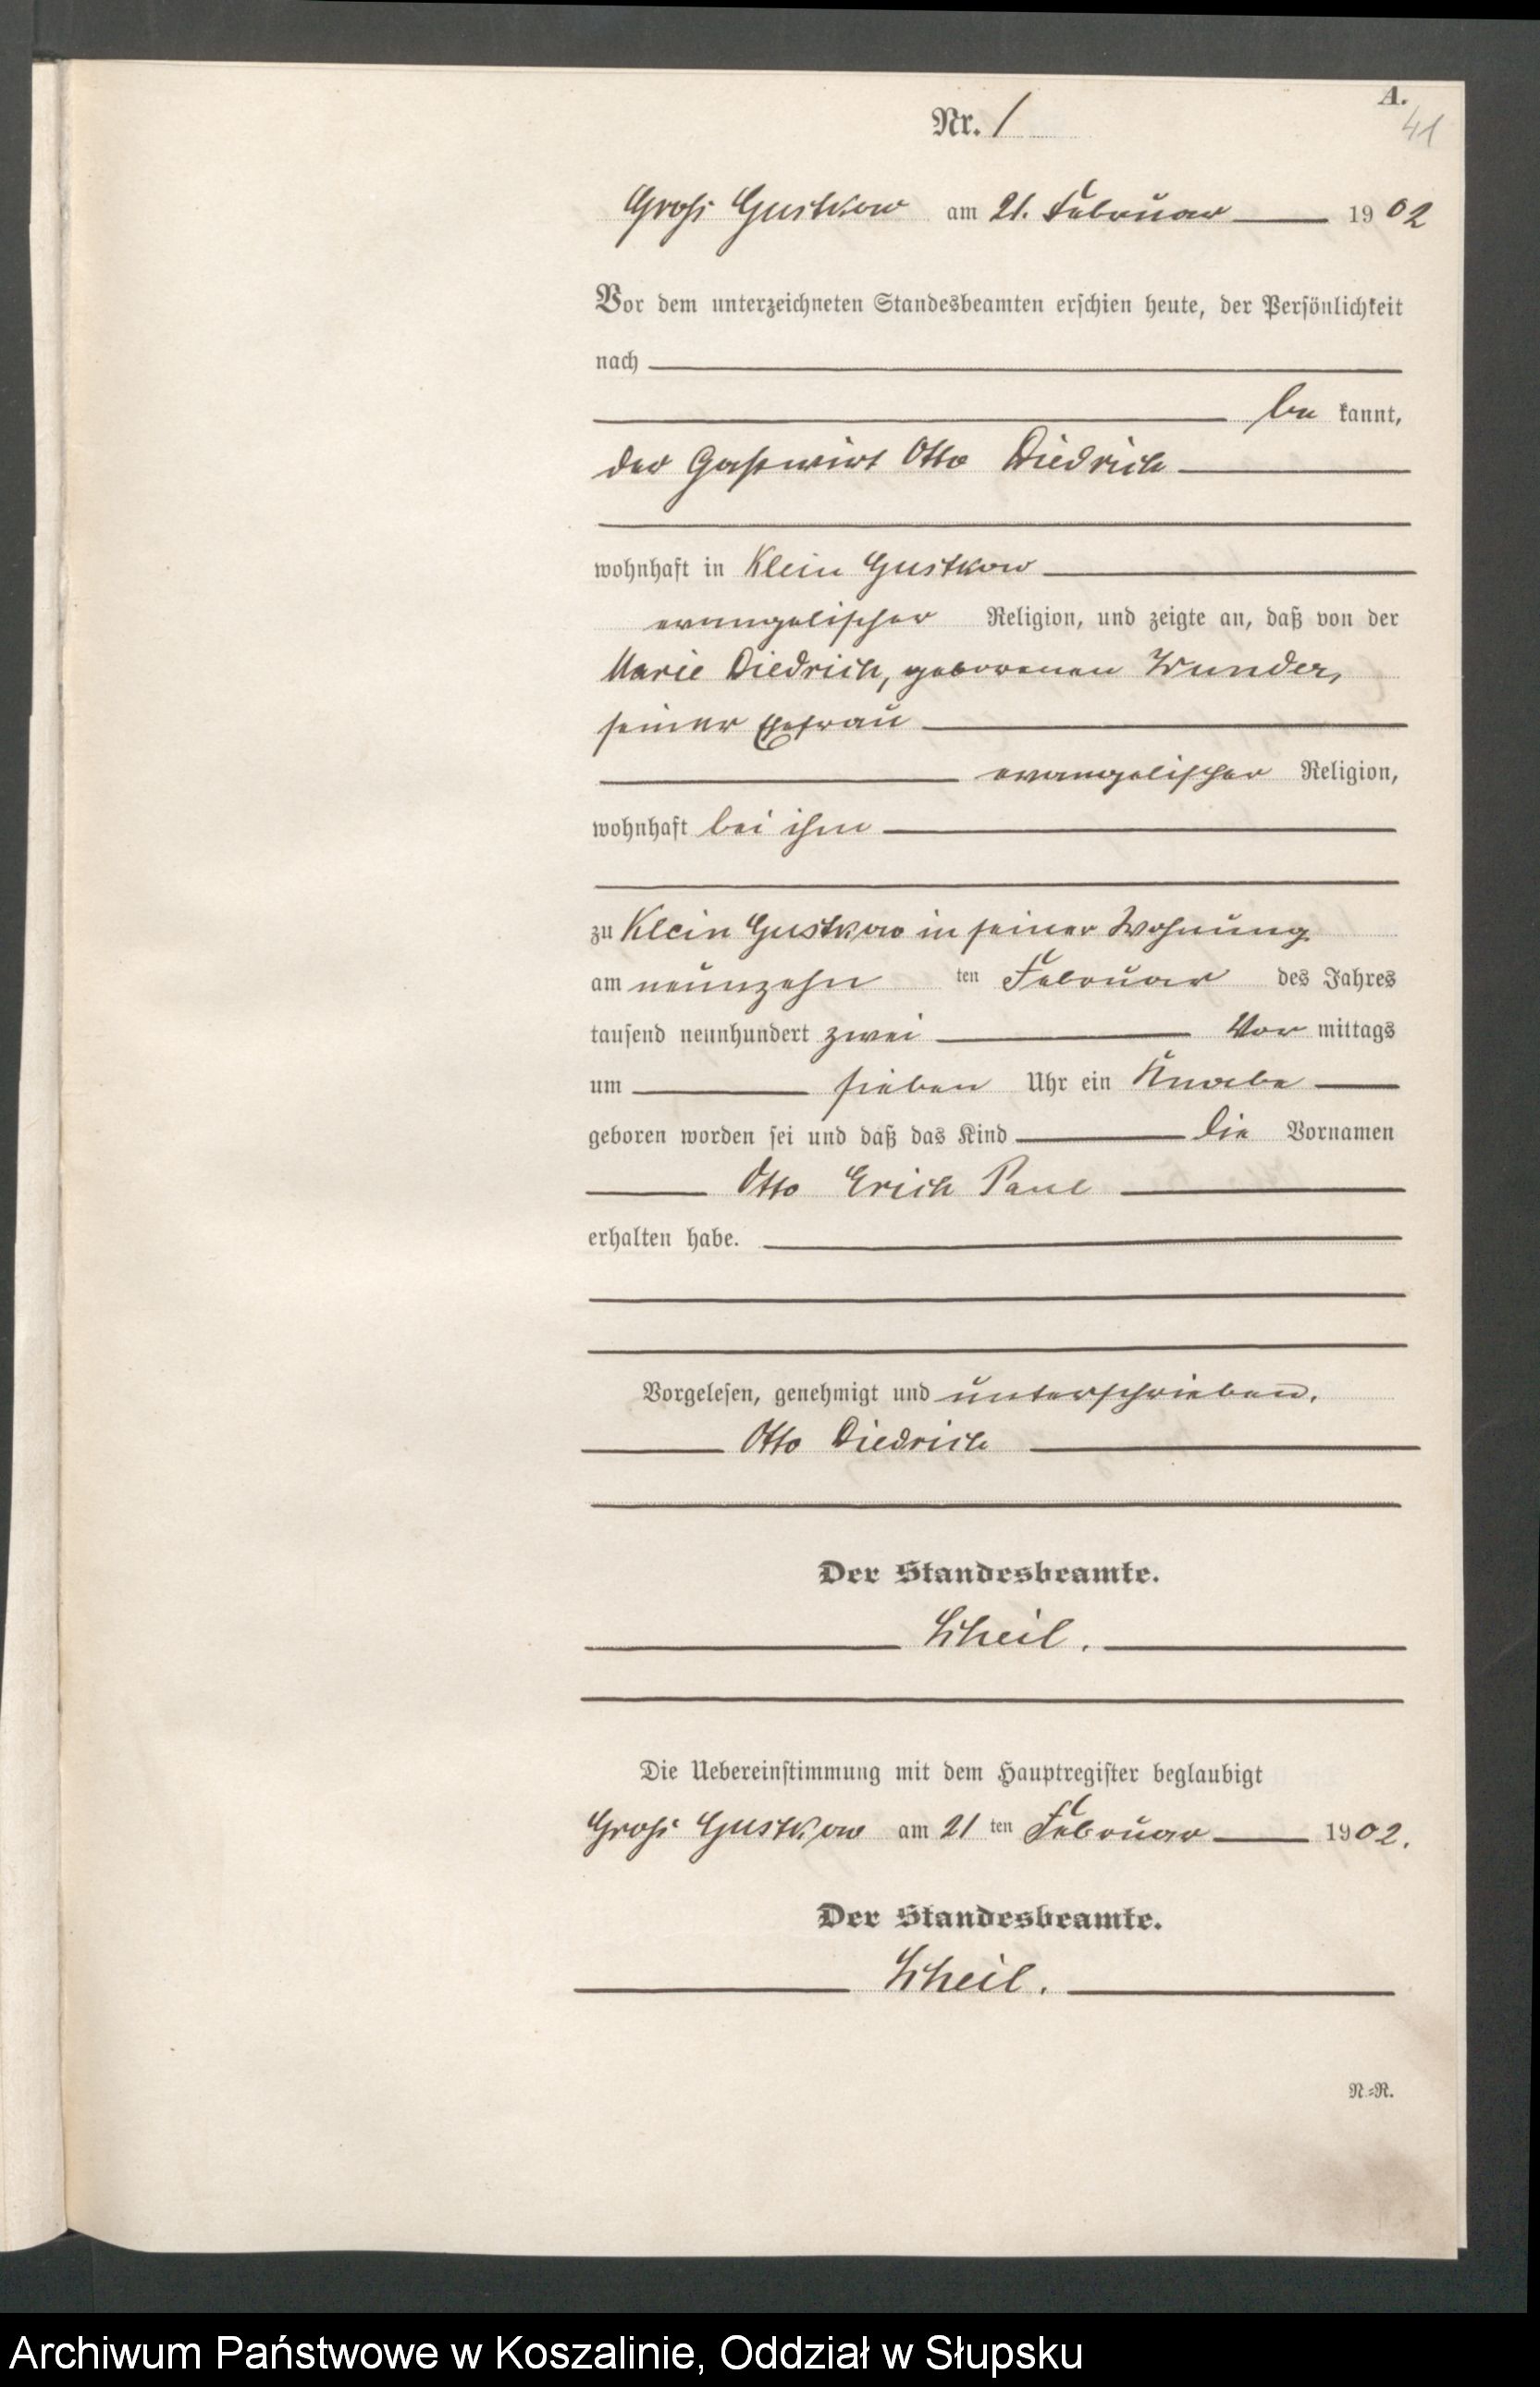 A.
41
Nr. 1
Groß Gustkow am 21. Februar 1902
Vor dem unterzeichneten Standesbeamten erschien heute, der Persönlichkeit
nach
be kannt,
der Gastwirt Otto Diedrich
wohnhaft in Klein Gustkow
evangelischer Religion, und zeigte an, daß von der
Marie Diedrich, geborenen Wunder,
seiner Ehefrau
evangelischer Religion,
wohnhaft bei ihm
zu Klein Gustkow in seiner Wohnung
am neunzehn ten Februar des Jahres
tausend neunhundert zwei Vor mittags
um sieben Uhr ein Knabe
geboren worden sei und daß das Kind die Vornamen
Otto Erich Paul
erhalten habe.
Vorgelesen, genehmigt und unterschrieben.
Otto Diedrich
Der Standesbeamte.
Scheil.
Die Uebereinstimmung mit dem Hauptregister beglaubigt
Groß Gustkow am 21 ten Februar 1902.
Der Standesbeamte.
Scheil.
N.=R.
Archiwum Państwowe w Koszalinie, Oddział w Słupsku